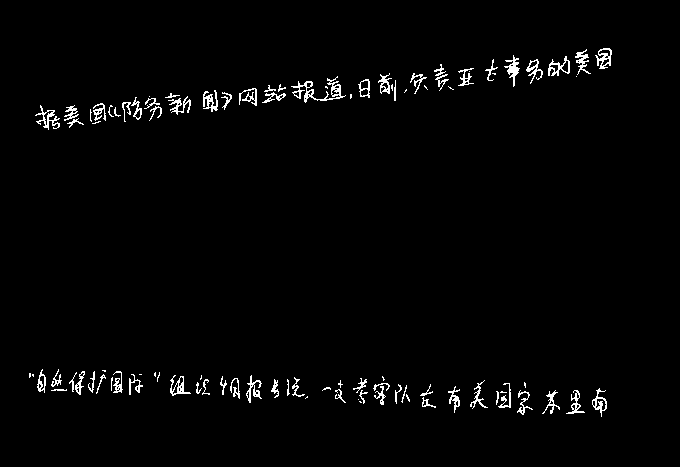 据美国《防务新闻》网站报道,日前,负责亚太事务的美国
“自然保护国际”组织4日报告说,一支考察队在南美国家苏里南